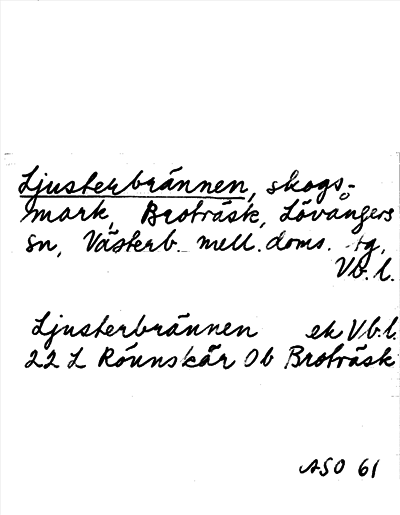 Ljusterbrännen, skogs-
mark, Broträsk, Lövångers
sn, Västerb. mell. doms. tg,
Vb. l.
Ljusterbrännen ek Vb.l.
22 L Rönnskär Ob Broträsk
ASO 61